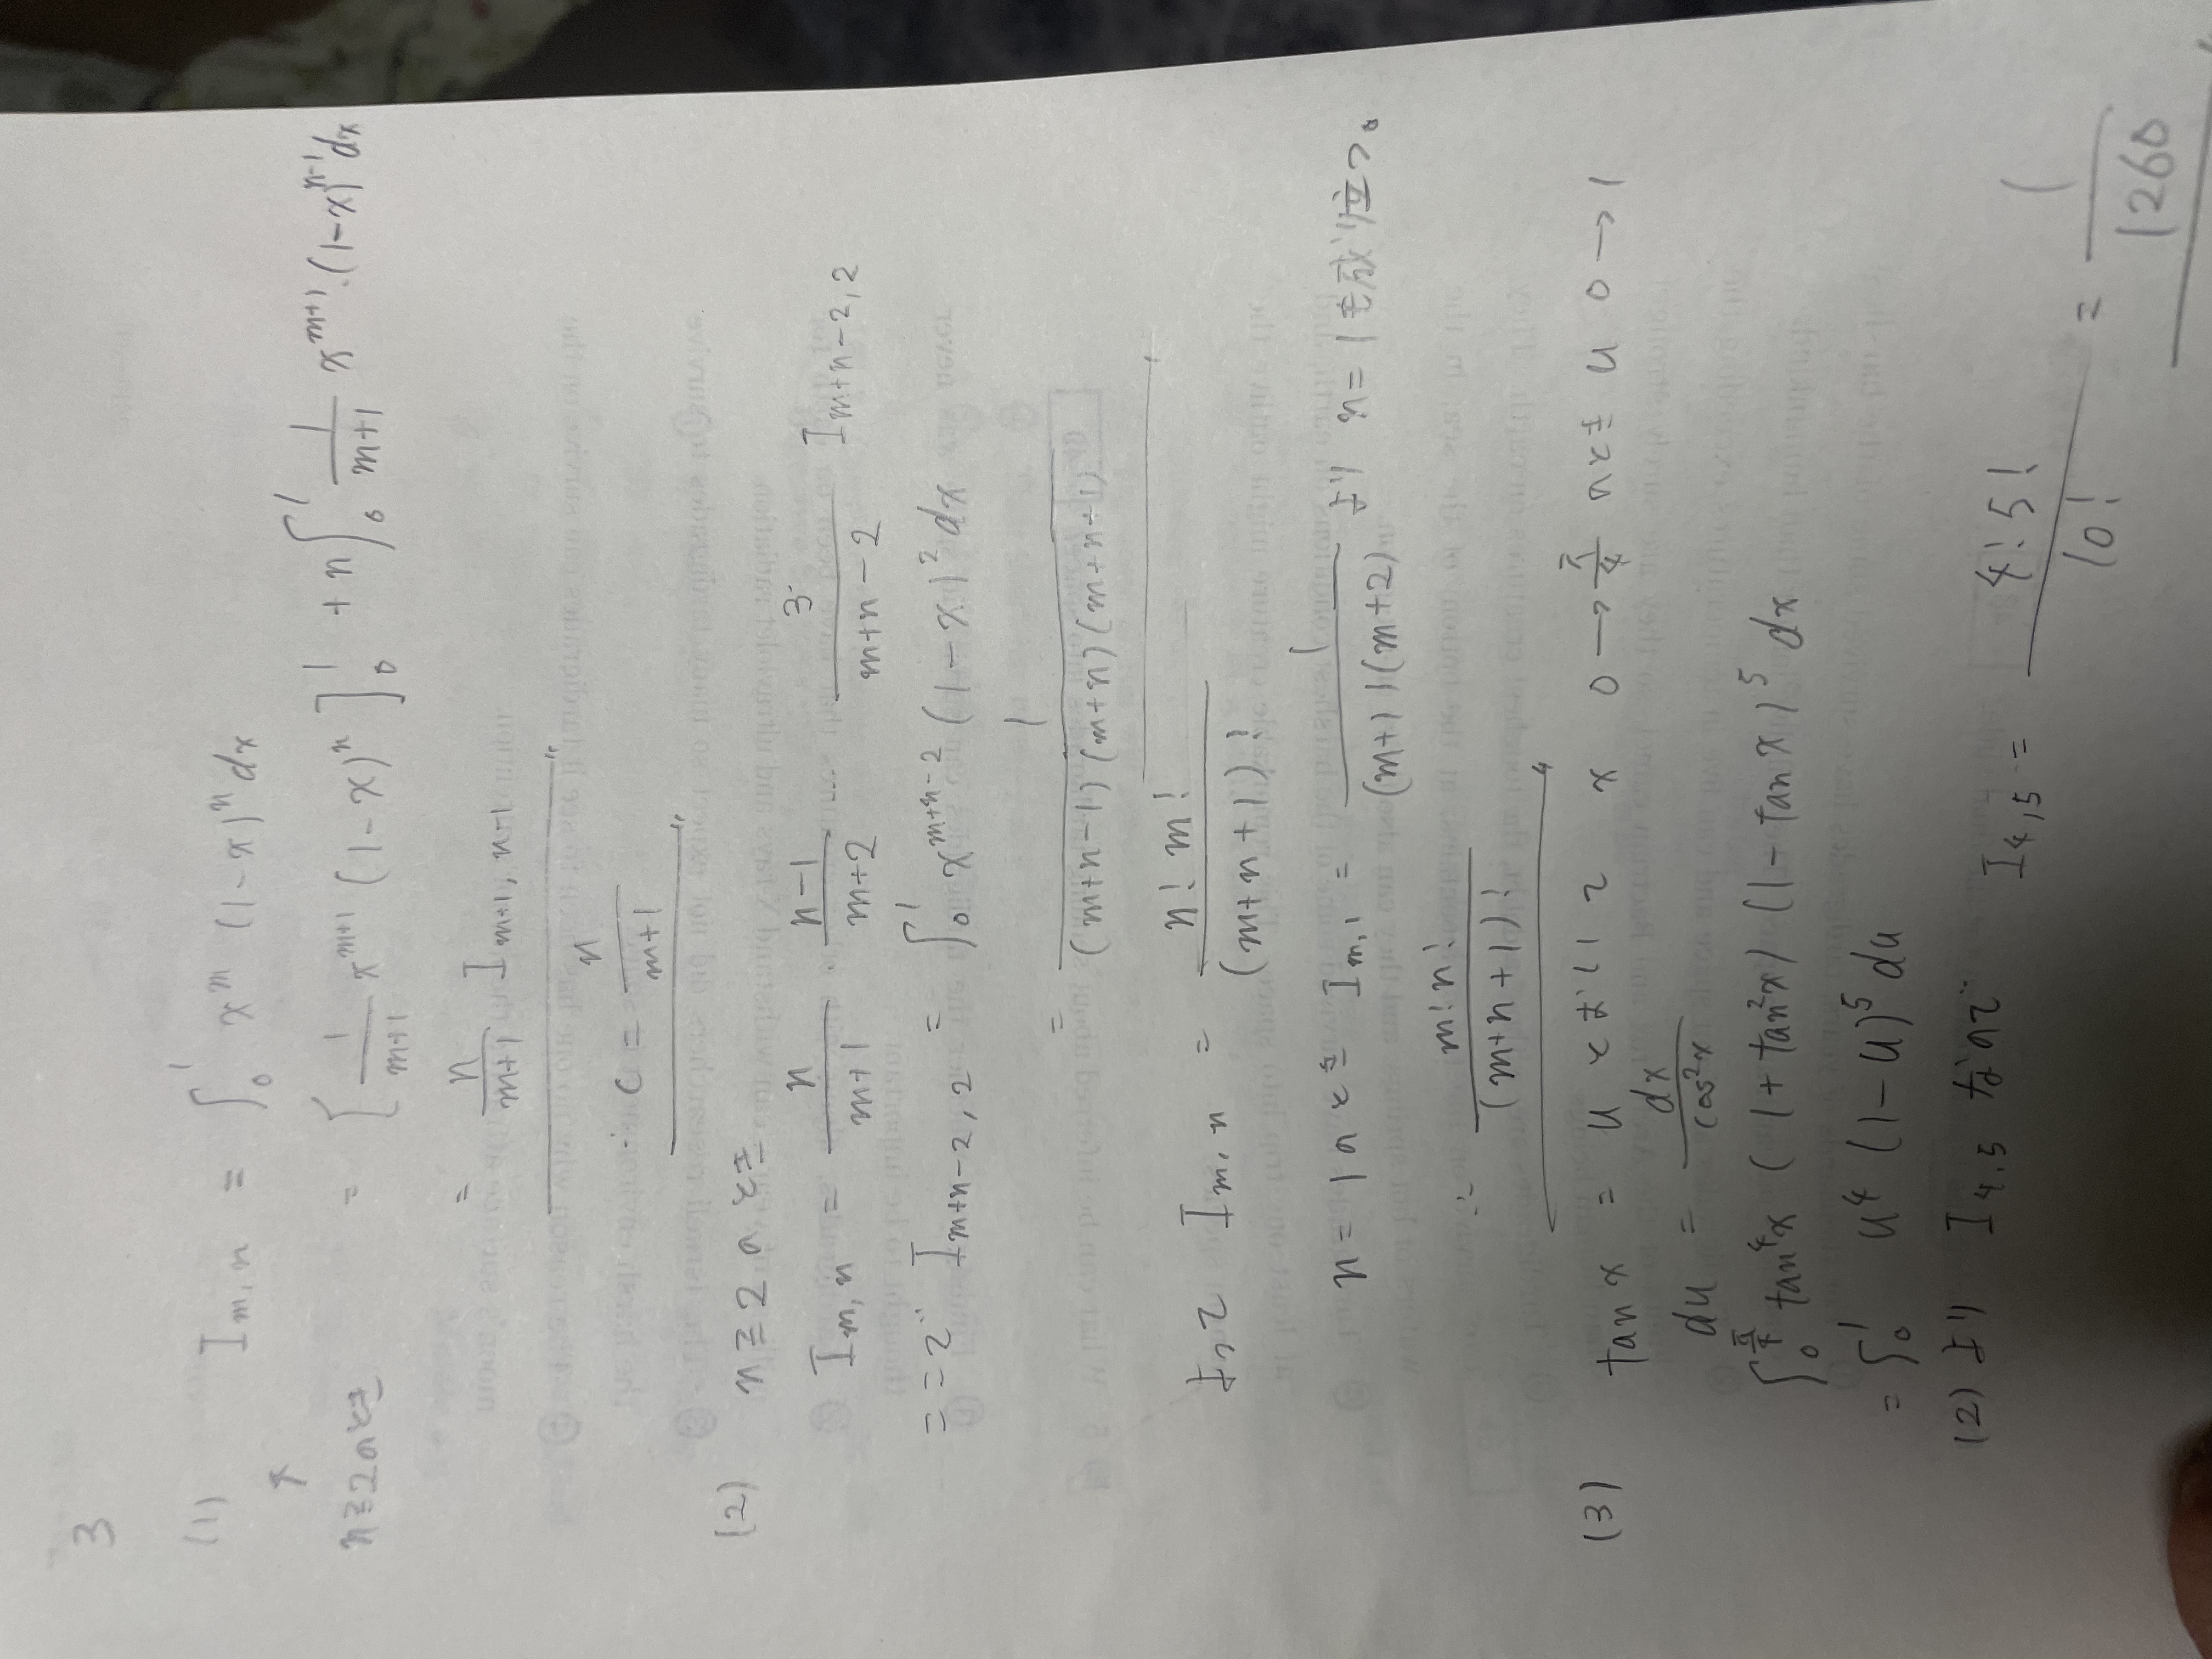 3
(1) I_{m,n} = ∫_0^1 x^m (1-x)^n dx
↑
n≧2のとき = [ \frac{1}{m+1} x^{m+1} (1-x)^n ]_0^1 + n ∫_0^1 \frac{1}{m+1} x^{m+1}・(1-x)^{n-1} dx
= \frac{n}{m+1} I_{m+1, n-1}
C = \frac{n}{m+1}
(2) n≧2のとき
I_{m,n} = \frac{n}{m+1} \frac{n-1}{m+2} \frac{3}{m+n-2} I_{m+n-2,2}
ここで I_{m+n-2,2} = ∫_0^1 x^{m+n-2} (1-x)^2 dx
= \frac{1}{(m+n-1)(m+n)(m+n+1)}
よって I_{m,n} = \frac{n!m!}{(m+n+1)!}
n=1のとき I_{m,1} = \frac{1}{(m+1)(m+2)} より n=1も成り立つ。
∴ \frac{m!n!}{(m+n+1)!}
(3) tanx = u とおいて x 0→\frac{π}{4} のとき u 0→1
du = \frac{dx}{cos^2x}
∫_0^{\frac{π}{4}} tan^4x (1+tan^2x) (1-tanx)^5 dx
= ∫_0^1 u^4 (1-u)^5 du
(2)より I_{4,5} なので I_{4,5} = \frac{4!5!}{10!} = \frac{1}{1260}